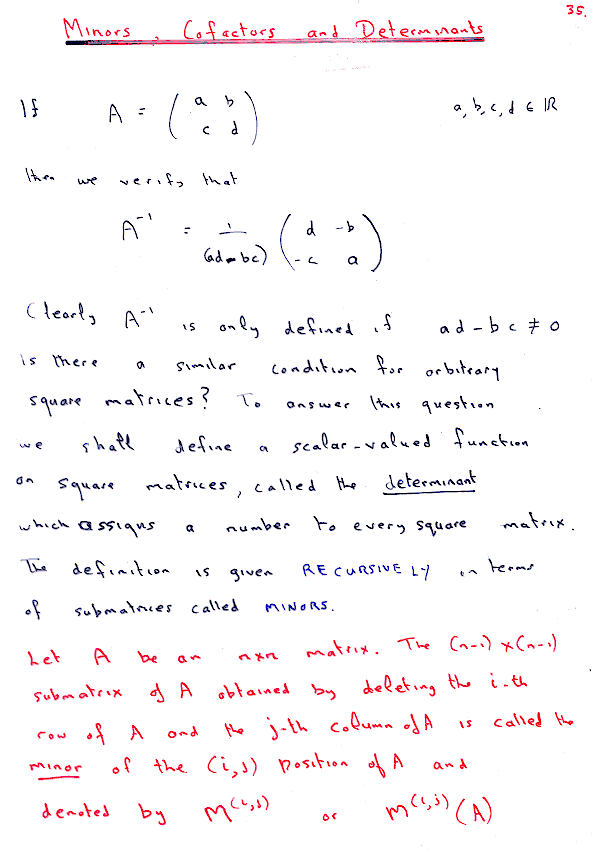 35.
Minors, Cofactors and Determinants
If A = ( a b ; c d ) a, b, c, d ∈ ℝ
then we verify that
A⁻¹ = 1/(ad-bc) ( d -b ; -c a )
Clearly A⁻¹ is only defined if ad - bc ≠ 0
is there a similar condition for arbitrary
square matrices? To answer this question
we shall define a scalar-valued function
on square matrices, called the determinant
which assigns a number to every square matrix.
The definition is given RECURSIVELY in terms
of submatrices called MINORS.
Let A be an n×n matrix. The (n-1) × (n-1)
submatrix of A obtained by deleting the i-th
row of A and the j-th column of A is called the
minor of the (i,j) position of A and
denoted by M^(i,j) or M^(i,j)(A)